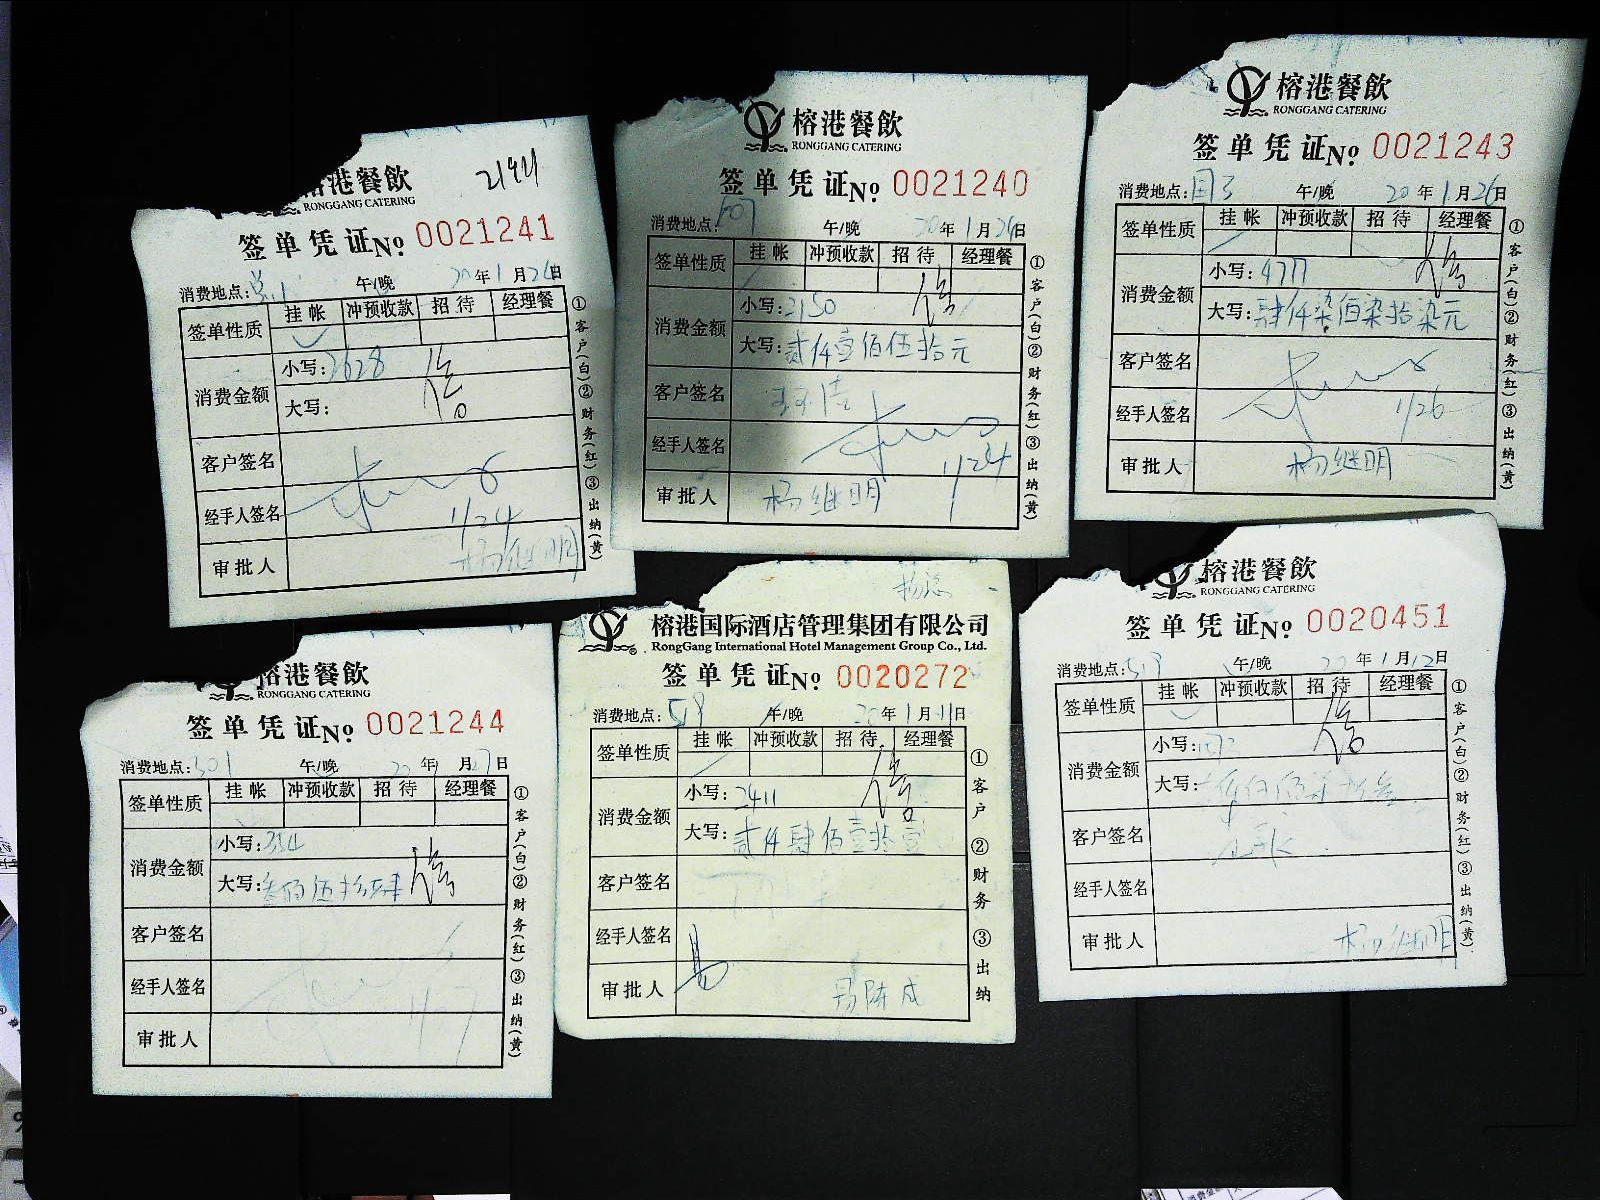 榕港餐飲
RONGGANG CATERING
签单凭证No 0021241
消费地点: 午/晚 20年1月24日
签单性质 挂帐 冲预收款 招待 经理餐
消费金额 小写:2628
大写:
客户签名
经手人签名
1/24
审批人 杨继明
①客户(白)②财务(红)③出纳(黄)
榕港餐飲
RONGGANG CATERING
签单凭证No 0021240
消费地点:607 午/晚 20年1月24日
签单性质 挂帐 冲预收款 招待 经理餐
消费金额 小写:2150
大写:贰仟壹佰伍拾元
客户签名
经手人签名 1/24
审批人 杨继明
①客户(白)②财务(红)③出纳(黄)
榕港餐飲
RONGGANG CATERING
签单凭证No 0021243
消费地点: 午/晚 20年1月26日
签单性质 挂帐 冲预收款 招待 经理餐
消费金额 小写:4777
大写:肆仟柒佰柒拾柒元
客户签名
经手人签名 1/26
审批人 杨继明
①客户(白)②财务(红)③出纳(黄)
榕港餐飲
RONGGANG CATERING
签单凭证No 0021244
消费地点:301 午/晚 年 月27日
签单性质 挂帐 冲预收款 招待 经理餐
消费金额 小写:354
大写:叁佰伍拾肆
客户签名
经手人签名
审批人
①客户(白)②财务(红)③出纳(黄)
榕港国际酒店管理集团有限公司
RongGang International Hotel Management Group Co., Ltd.
签单凭证No 0020272
消费地点:519 午/晚 20年1月11日
签单性质 挂帐 冲预收款 招待 经理餐
消费金额 小写:2411
大写:贰仟肆佰壹拾壹
客户签名
经手人签名
审批人
①客户②财务③出纳
榕港餐飲
RONGGANG CATERING
签单凭证No 0020451
消费地点:519 午/晚 年1月12日
签单性质 挂帐 冲预收款 招待 经理餐
消费金额 小写:
大写:
客户签名
经手人签名
审批人 杨继明
①客户(白)②财务(红)③出纳(黄)